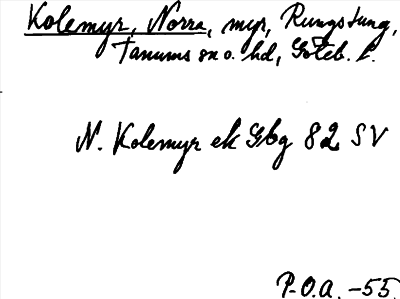 Kolemyr, Norra, myr, Rungstung,
Tanums sn o. hd, Göteb. l.
N. Kolemyr ek Gbg 82 SV
P.O.A. -55.